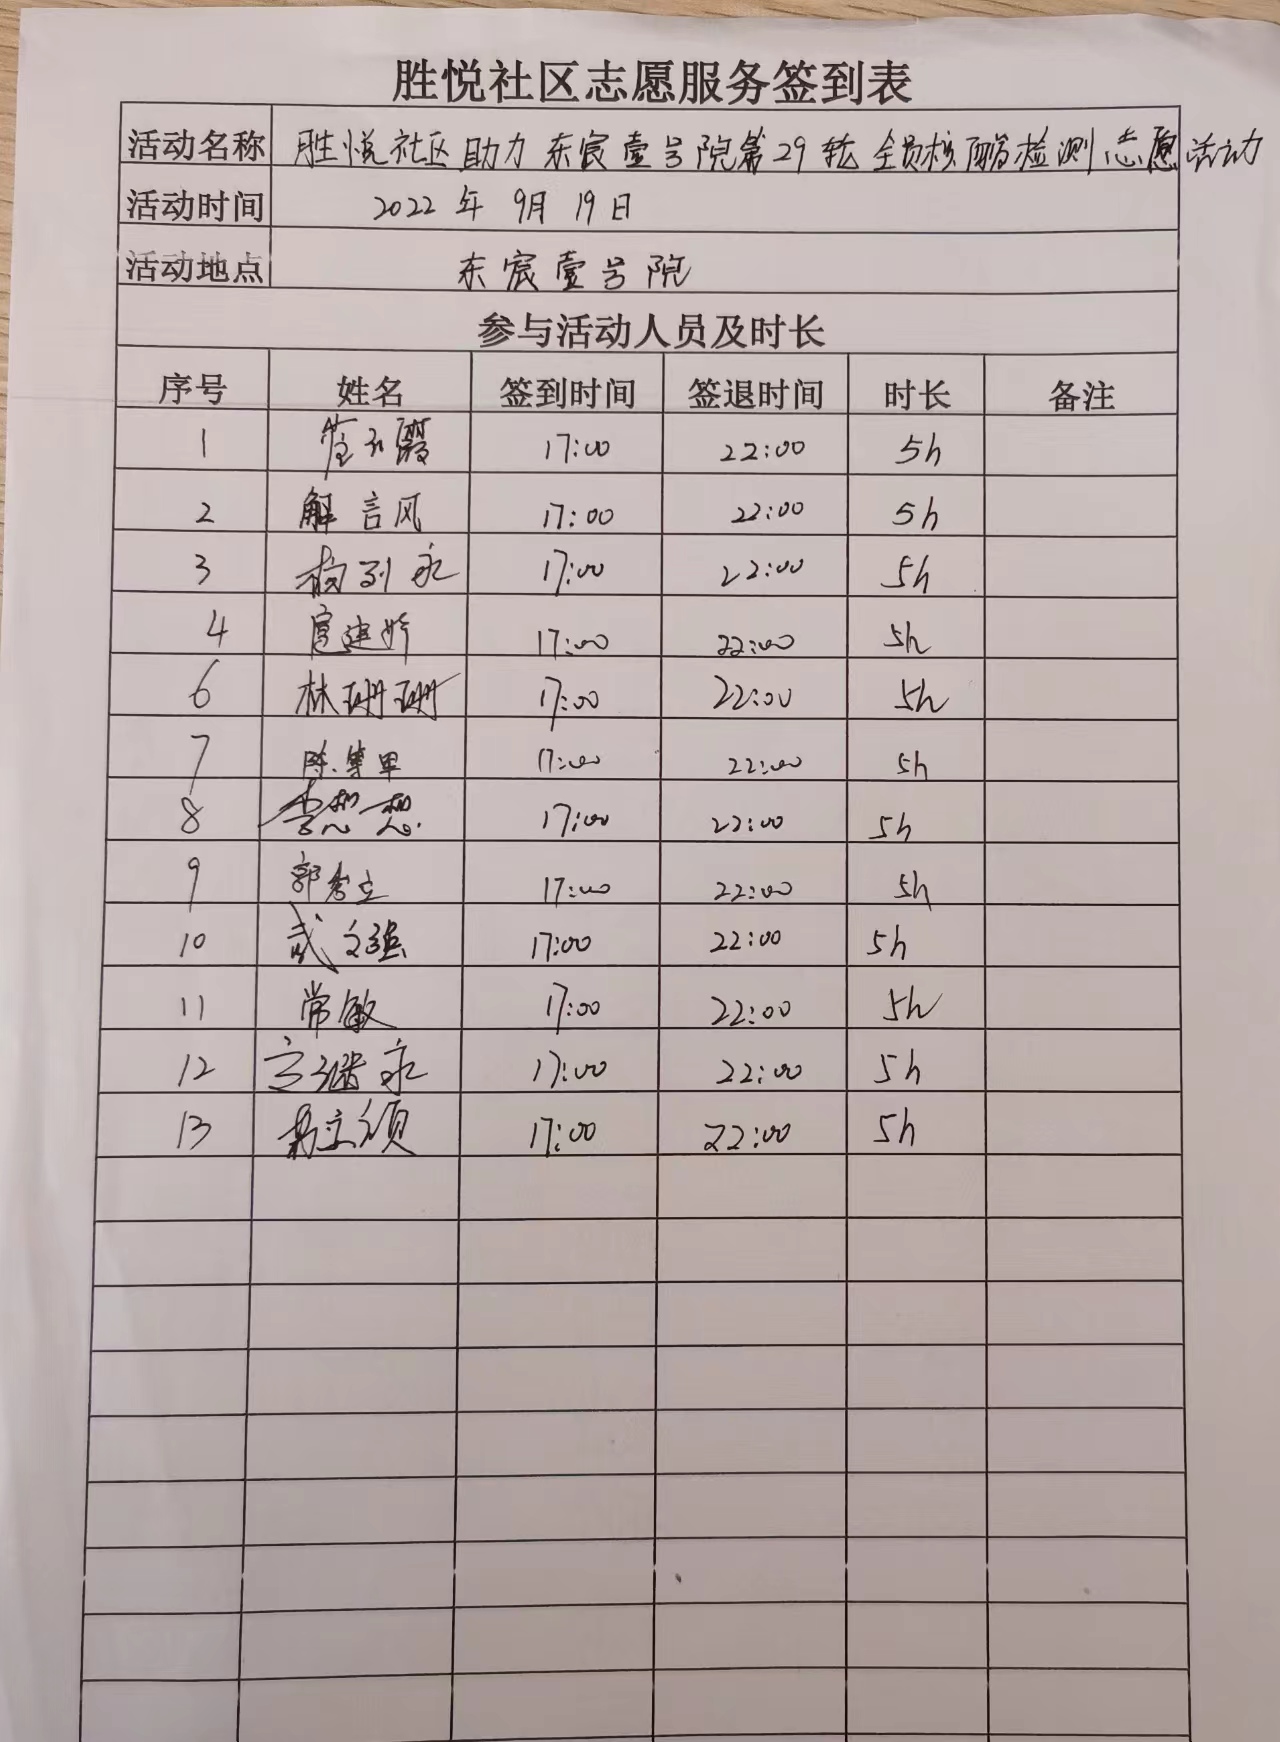 胜悦社区志愿服务签到表
活动名称 胜悦社区助力东宸壹号院第29轮全员核酸检测志愿活动
活动时间 2022年9月19日
活动地点 东宸壹号院
参与活动人员及时长
序号 姓名 签到时间 签退时间 时长 备注
1 17:00 22:00 5h
2 解言风 17:00 22:00 5h
3 17:00 22:00 5h
4 17:00 22:00 5h
6 林珊珊 17:00 22:00 5h
7 17:00 22:00 5h
8 李想想 17:00 22:00 5h
9 郭 立 17:00 22:00 5h
10 武文强 17:00 22:00 5h
11 常敏 17:00 22:00 5h
12 继永 17:00 22:00 5h
13 17:00 22:00 5h